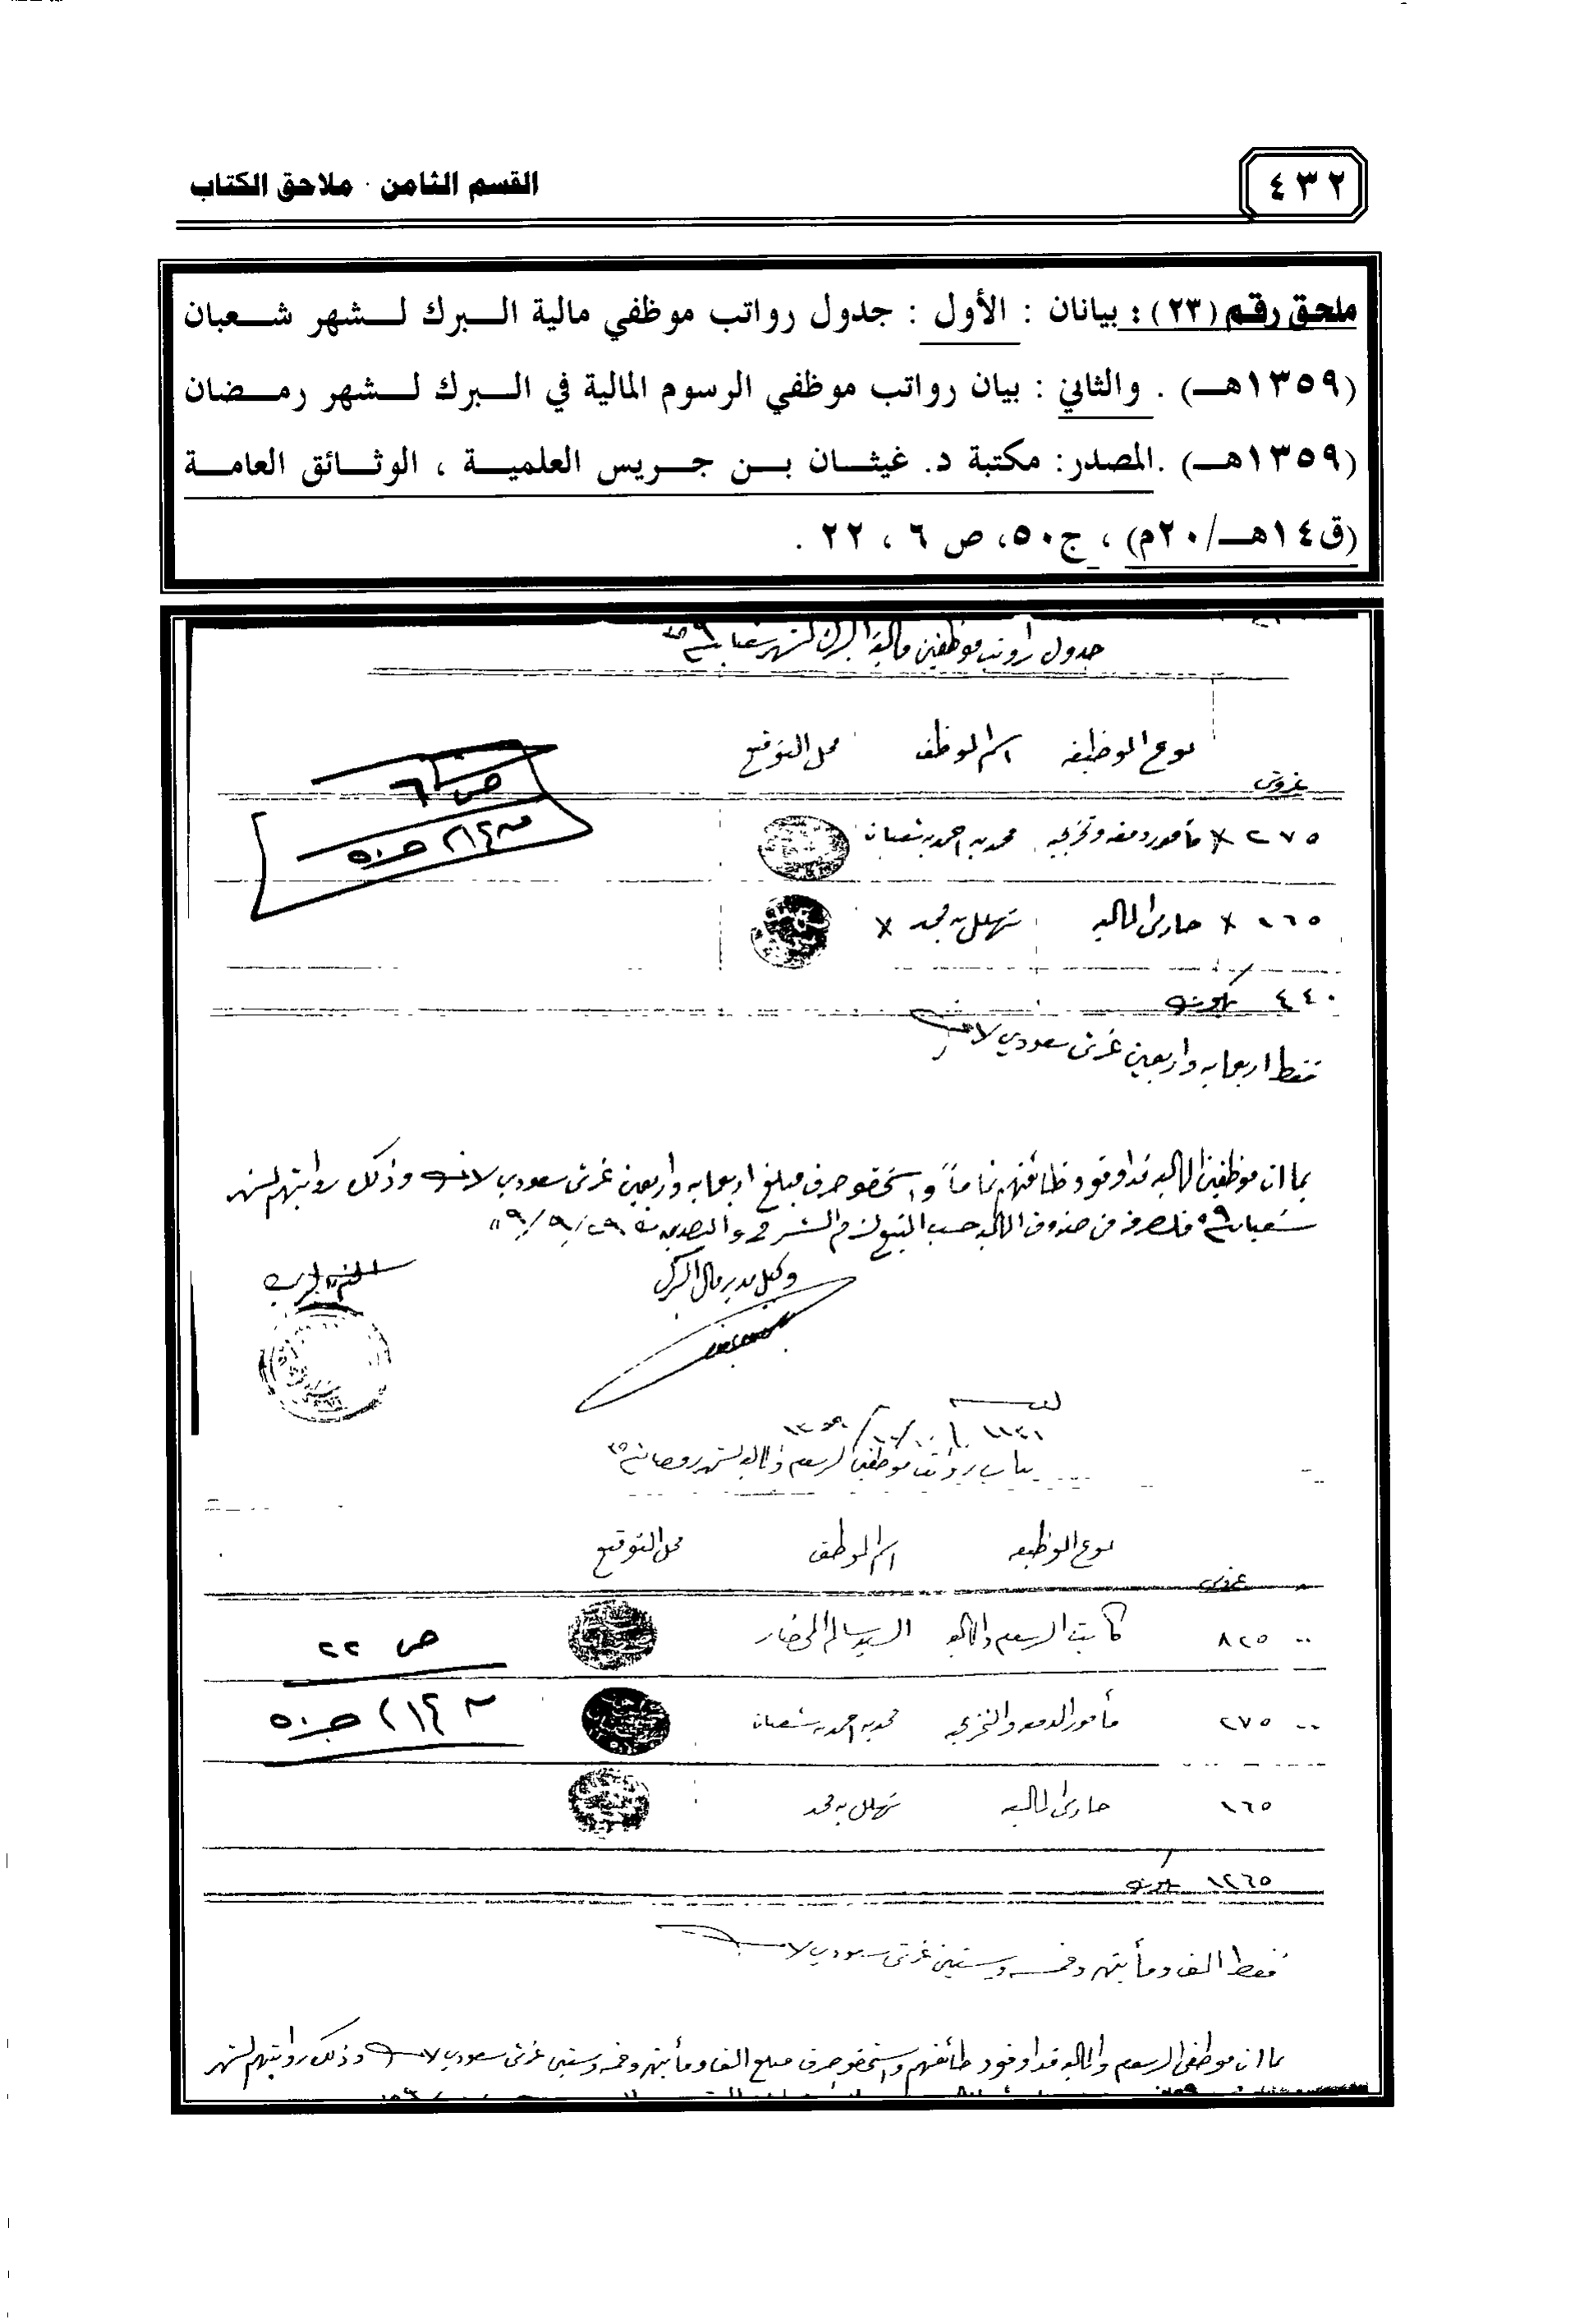 ٤٣٢
القسم الثامن - ملاحق الكتاب
ملحق رقم (٢٣) : بيانان : الأول : جدول رواتب موظفي مالية البرك لشهر شعبان
(١٣٥٩هـ) . والثاني : بيان رواتب موظفي الرسوم المالية في البرك لشهر رمضان
(١٣٥٩هـ) .المصدر: مكتبة د. غيثان بن جريس العلمية ، الوثائق العامة
(ق١٤هـ/٢٠م) ، ج٥٠، ص ٦ ، ٢٢ .
جدول رواتب موظفين مالية البرك لشهر شعبان ٥٩
نوع الوظيفه اسم الموظف محل التوقيع
غروش
ص ٦
٢٧٥ مأمور دمغه وتخريج محمد بن احمد بن شعبان
ج ٥٠
١٦٥ حارس الماليه نهلل بن محمد
٤٤٠
فقط اربعمايه واربعين غرش سعودي لاغير
بما ان موظفين الماليه قد اوفو وظائفهم تماماً واستحقو صرف مبلغ اربعمايه واربعين غرش سعودي لاغير وذلك رواتبهم لشهر
شعبان ٥٩ فلصرفه من صندوق الماليه حسب المتبع لزم الشرح والتصديق ٥٩/٩/٩
وكيل مدير مال البرك
١١٤١
بيان رواتب موظفين الرسوم والماليه لشهر رمضان ٥٩
نوع الوظيفه اسم الموظف محل التوقيع
غروش
٨٢٥ كاتب الرسوم والماليه السيد سالم المحضار
ص ٢٢
٢٧٥ مأمور الدمغه والتخريج محمد بن احمد بن شعبان
ج ٥٠
١٦٥ حارس الماليه نهلل بن محمد
١٢٦٥
فقط الف ومأيتين وخمسه وستين غرش سعودي لاغير
بما ان موظفي الرسوم والماليه قد اوفو وظائفهم واستحقو صرف مبلغ الف ومأيتين وخمسه وستين غرش سعودي لاغير وذلك رواتبهم لشهر